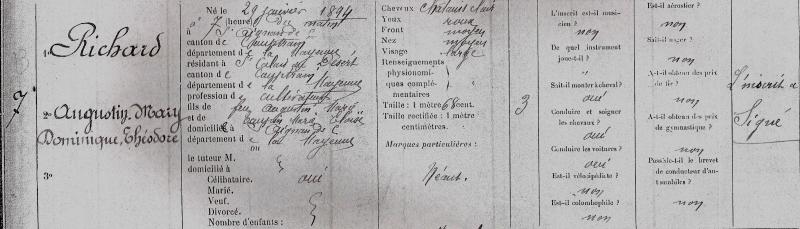 7e
1o Richard
2o Augustin, Mary
Dominique, Théodore
3o
Né le 29 janvier 1894
à 7 heure du matin
à St Aignan de C
canton de Couptrain
département de la Mayenne
résidant à St Calais du Désert
canton de Couptrain
département de la Mayenne
profession de cultivateur
fils de feu Augustin Marie
et de
domicilié à Aignan de C
département d la Mayenne
ou
le tuteur M.
domicilié à
Célibataire. oui
Marié.
Veuf.
Divorcé.
Nombre d'enfants :
Cheveux Chatains clair
Yeux roux
Front moyen
Nez moyen
Visage large
Renseignements
physionomi-
ques complé-
mentaires
Taille : 1 mètre 61 cent.
Taille rectifiée : 1 mètre
centimètres.
Marques particulières :
Néant.
3
L'inscrit est-il musi-
cien ?
non
De quel instrument
joue-t-il ?
"
Sait-il monter à cheval ?
oui
Conduire et soigner
les chevaux ?
oui
Conduire les voitures ?
oui
Est-il vélocipédiste ?
non
Est-il colombophile ?
non
Est-il aérostier ?
non
Sait-il nager ?
non
A-t-il obtenu des prix
de tir ?
non
A-t-il obtenu des prix
de gymnastique ?
non
Possède-t-il le brevet
de conducteur d'au-
tomobiles ?
non
L'inscrit a
Signé